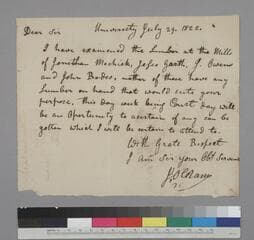 University July 29. 1822.
Dear Sir
I have examined the Lumber at the Mills
of Jonathan Mechick, Jesse Garth, J. Owens
and John Rodes, nether of these have any
Lumber on hand that would suite your
purpose, This day week being Court day will
be an Oportunity to asertain if any can be
gotten which I will be certain to attend to.
With Grate Respect
I am Sir your Obt Servant